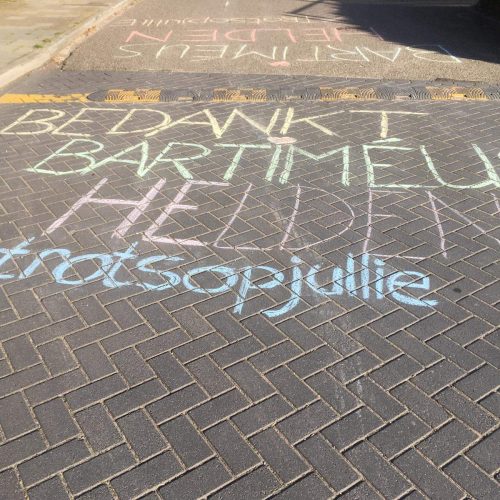 BEDANKT
BARTIMÉU
HELDEN
#trotsopjullie
BARTIMEUS
HELDEN
#trotsopjullie